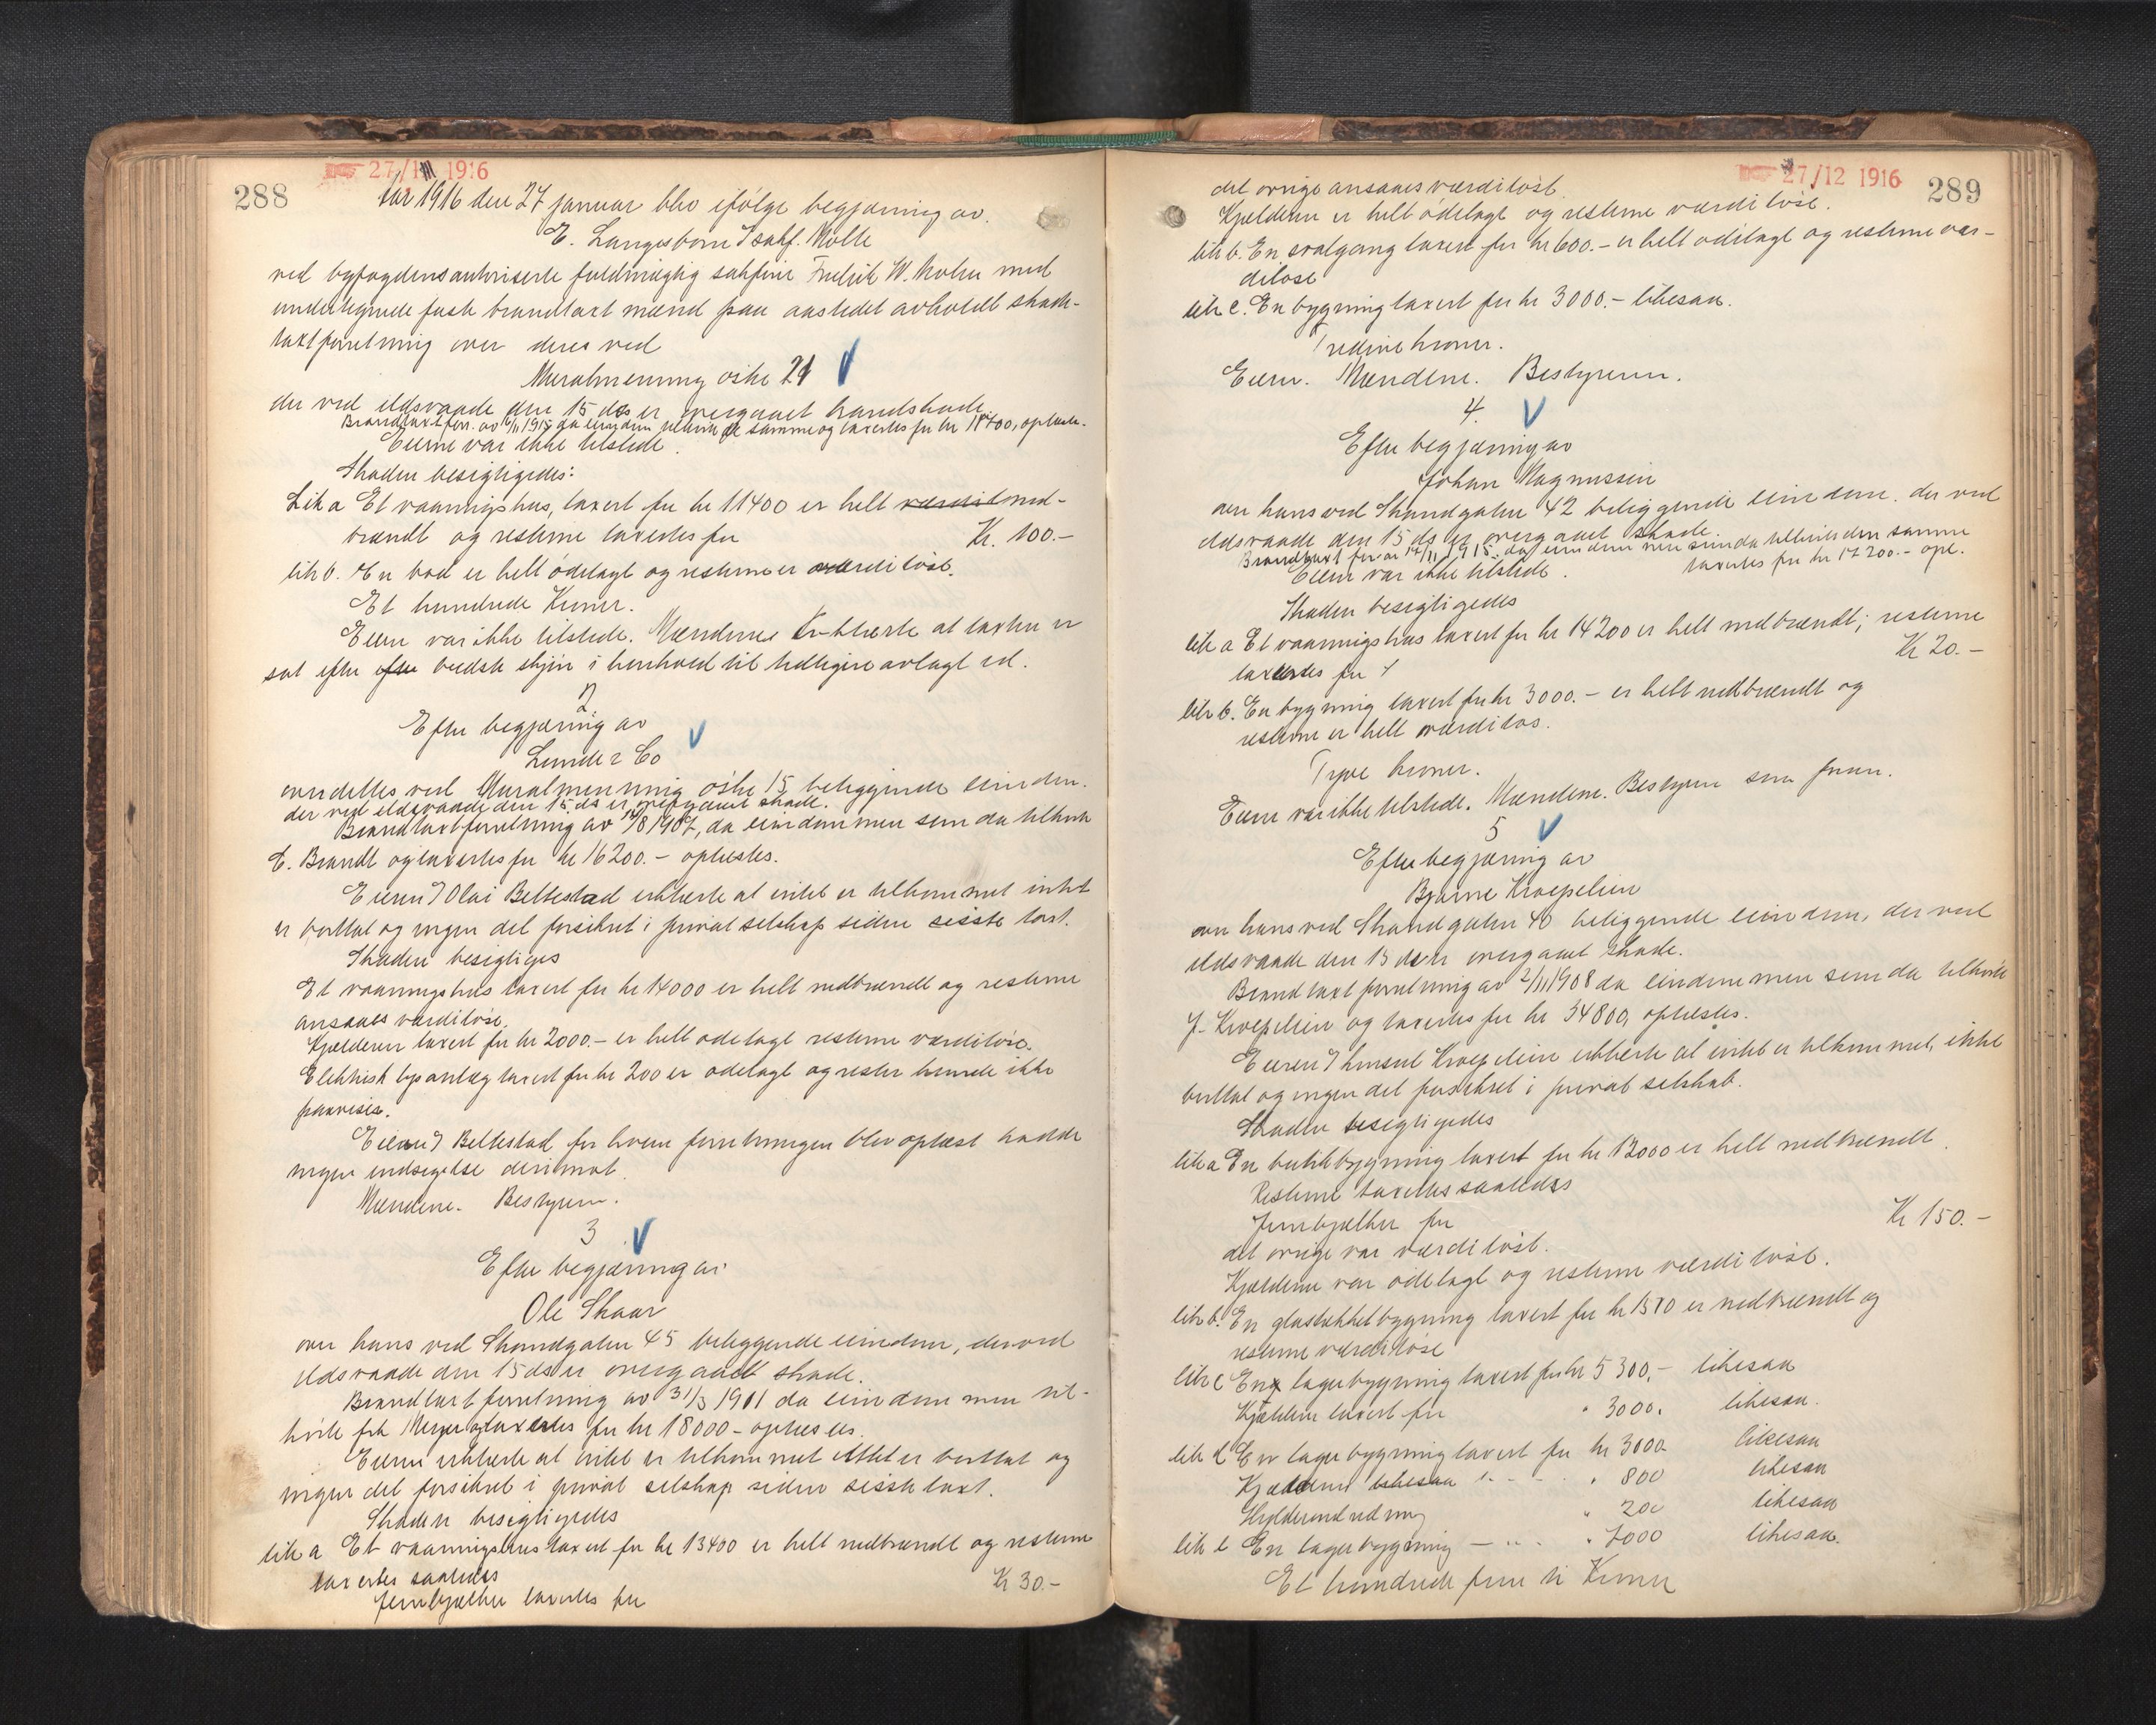 288
27/1 1916
Aar 1916 den 27 januar blev ifølge begjæring av
E. Langesborn ved sakf. Molte
ved byfogdens autoriserte fuldmægtig sakfører Fredrik W. Holm med
undertegnede faste brandtakst mænd paa aastedet avholdt skade-
takstforretning over deres ved
Muralmenning østre 21
der ved ildsvaade den 15 ds er overgaaet brandskade.
Brandtakstforr. av 16/11 1915 da eiendommen tilhørte de samme og taxertes for kr 11700, oplæstes.
Eierne var ikke tilstede.
Skaden besigtigedes:
Litr a Et vaaningshus, taxert for kr 11400 er helt ned-
brændt og resterne taxertes for Kr. 100.-
litr b. En bod er helt ødelagt og resterne er værdiløse.
Et hundrede Kroner.
Eieren var ikke tilstede. Mændene erklærte at taxten er
sat efter bedste skjøn i henhold til tidligere avlagt ed.
2
Efter begjæring av
Lunde & Co
over deres ved Muralmenning østre 15 beliggende eiendom.
der ved ildsvaade den 15 ds er overgaaet skade.
Brandtaxtforretning av 14/8 1907, da eiendommen som da tilhørte
E. Brandt og taxertes for kr 16200.- oplæstes.
Eieren ved Olai Bellestad erklærte at intet er tilkommet intet
er borttat og ingen del forsikret i privat selskap siden sisste taxt.
Skaden besigtiges
Et vaaningshus taxert for kr 14000 er helt nedbrændt og resterne
ansaaes værdiløse.
Kjælderen taxert for kr 2000.- er helt ødelagt resterne værdiløse.
Elektrisk lysanlæg taxert for kr 200 er ødelagt og rester kunde ikke
paavises.
Eieren ved Bellestad for hvem forretningen blev oplæst hadde
ingen indsigelse derimot.
Mændene. Bestyreren.
3
Efter begjæring av
Ole Skaar
over hans ved Strandgaten 45 beliggende eiendom, der ved
ildsvaade den 15 ds er overgaaet skade.
Brandtaxtforretning av 31/3 1911 da eiendommen til-
hørte frk Meyer og taxertes for kr 18000- oplæstes.
Eieren erklærte at intet er tilkommet intet er borttat og
ingen del forsikret i privat selskap siden sisste taxt.
Skaden besigtigedes
litr a Et vaaningshus taxert for kr 13400 er helt nedbrændt og resterne
taxertes saaledes
jernbjælker taxertes for Kr 30.-
27/12 1916
289
det øvrige ansaaes værdiløst.
Kjælderen er helt ødelagt og resterne værdiløse.
litr b. En svalgang taxert for kr 600.- er helt ødelagt og resterne vær-
diløse
litr c. En bygning taxert for kr 3000.- likesaa.
Tredive kroner.
Eieren. Mændene. Bestyreren.
4.
Efter begjæring av
Johan Magnussen
over hans ved Strandgaten 42 beliggende eiendom. der ved
ildsvaade den 15 ds er overgaaet skade.
Brandtaxt forr av 17/11 1915. da eiendommen som da tilhørte den samme
taxertes for kr 17200.- opl.
Eieren var ikke tilstede.
Skaden besigtigedes
litr a Et vaaningshus taxert for kr 14200 er helt nedbrændt; resterne
taxertes for Kr 20.-
litr b. En bygning taxert for kr 3000.- er helt nedbrændt og
resterne er helt værdiløs.
Tyve kroner.
Eieren var ikke tilstede. Mændene. Bestyreren som foran.
5
Efter begjæring av
Bjarne Kroepelien
over hans ved Strandgaten 40 beliggende eiendom, der ved
ildsvaade den 15 ds er overgaaet skade.
Brandtaxtforretning av 2/11 1908 da eiendommen som da tilhørte
J. Kroepelien og taxertes for kr 34800, oplæstes.
Eieren ved konsul Kroepelien erklærte at intet er tilkommet, ikke
borttat og ingen del forsikret i privat selskab.
Skaden besigtigedes
litr a En butikbygning taxert for kr 13000 er helt nedbrændt.
Resterne taxertes saaledes
Jernbjælker for Kr 150.-
det øvrige var værdiløst.
Kjælderen var ødelagt og resterne værdiløst.
litr b. En glastækket bygning taxert for kr 1500 er nedbrændt og
resterne værdiløse
litr c En lagerbygning taxert for kr 5300,- likesaa
Kjælderen taxert for " 3000. likesaa.
litr d En lagerbygning taxert for kr 3000 likesaa
Kjælderen likesaa " 800 likesaa
Hylderindredning " 200 likesaa
litr e En lagerbygning - " - " 7000 likesaa.
Et hundrede femti Kroner